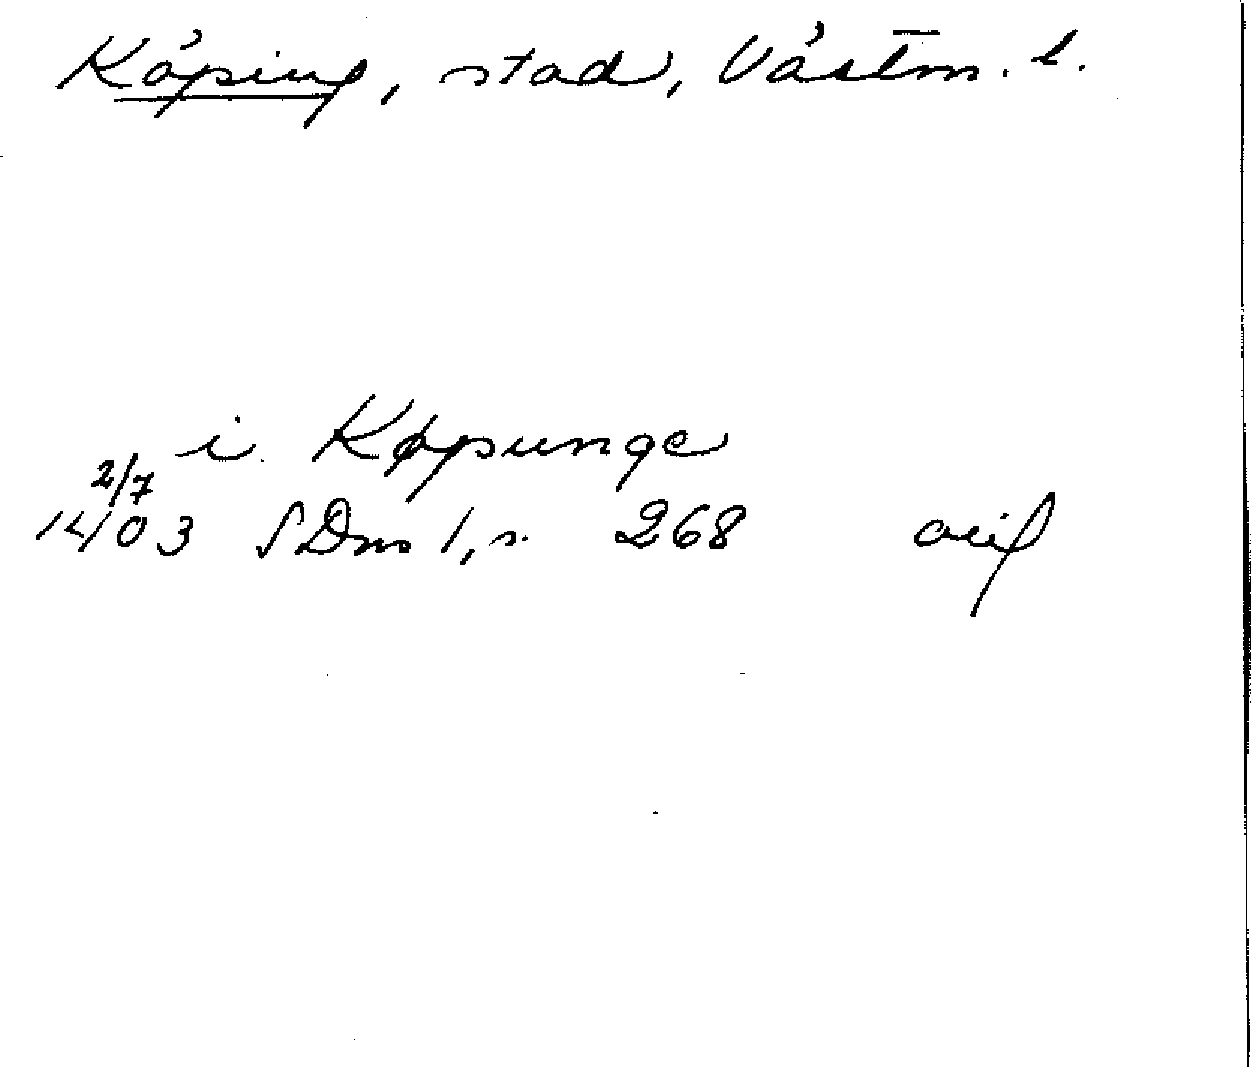 Köping, stad, Västm. l.
i Køpunge
2/7
1403 SDns 1, s. 268 orig